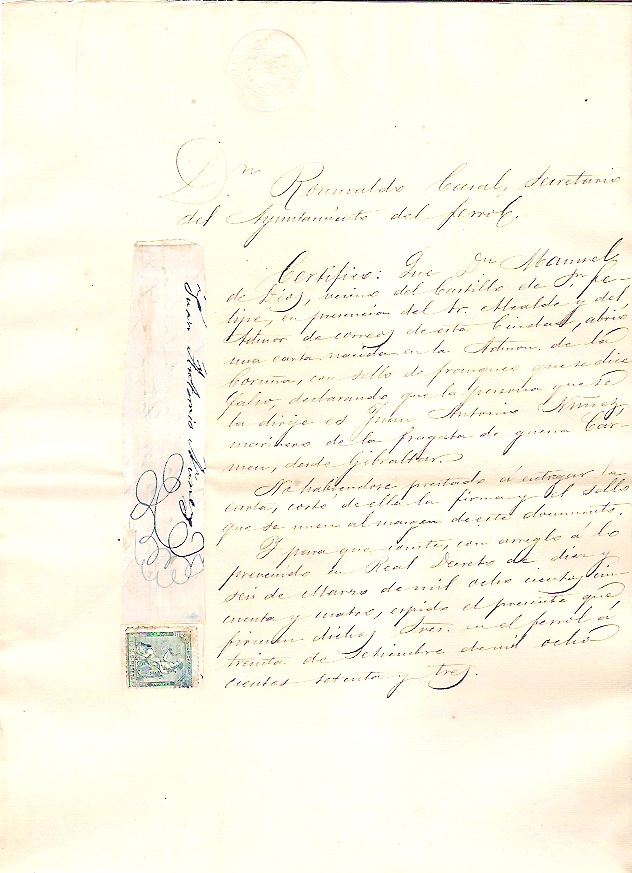 Dn Romualdo Casal, Secretario
del Ayuntamiento del Ferrol.
Certifico: Que Dn Manuel
de Dios, vecino del Castillo de Sn Fe-
lipe, en presencia del Sr. Alcalde y del
Admor de correos de esta Ciudad, abrió
una carta nacida en la Admon. de la
Coruña, con sello de franqueo que se dice
falso, declarando que la persona que se
la dirije es Juan Antonio Nuñez,
marinero de la fragata de guerra Car-
men, desde Gibraltar.
No habiendose prestado á entregar la
carta, corto de ella la firma y el sello
que se une al margen de este documento.
Y para que conste, con arreglo á lo
prevenido en Real Decreto de diez y
seis de Marzo de mil ocho cientos cin-
cuenta y cuatro, espido el presente que
firman dichos Sres. en el Ferrol á
treinta de Setiembre de mil ocho
cientos setenta y tres.
Juan Antonio Nuñez